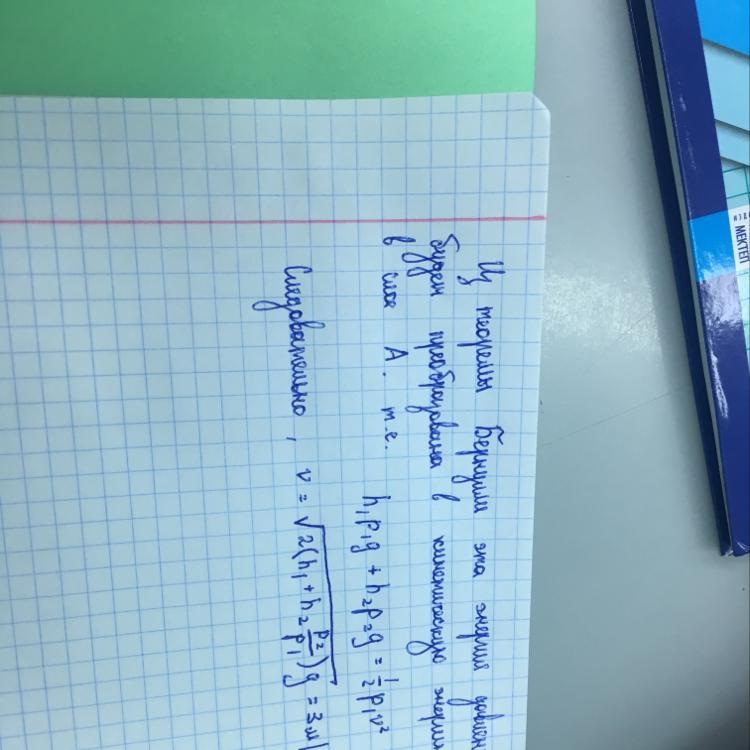 Из теоремы Бернулли эта энергия давлен
будет преобразована в кинетическую энерги
в слое А. т.е.
h₁ρ₁g + h₂ρ₂g = ½ρ₁v²
Следовательно, v = √2(h₁ + h₂ ρ₂/ρ₁)g = 3м/
МЕКТЕП